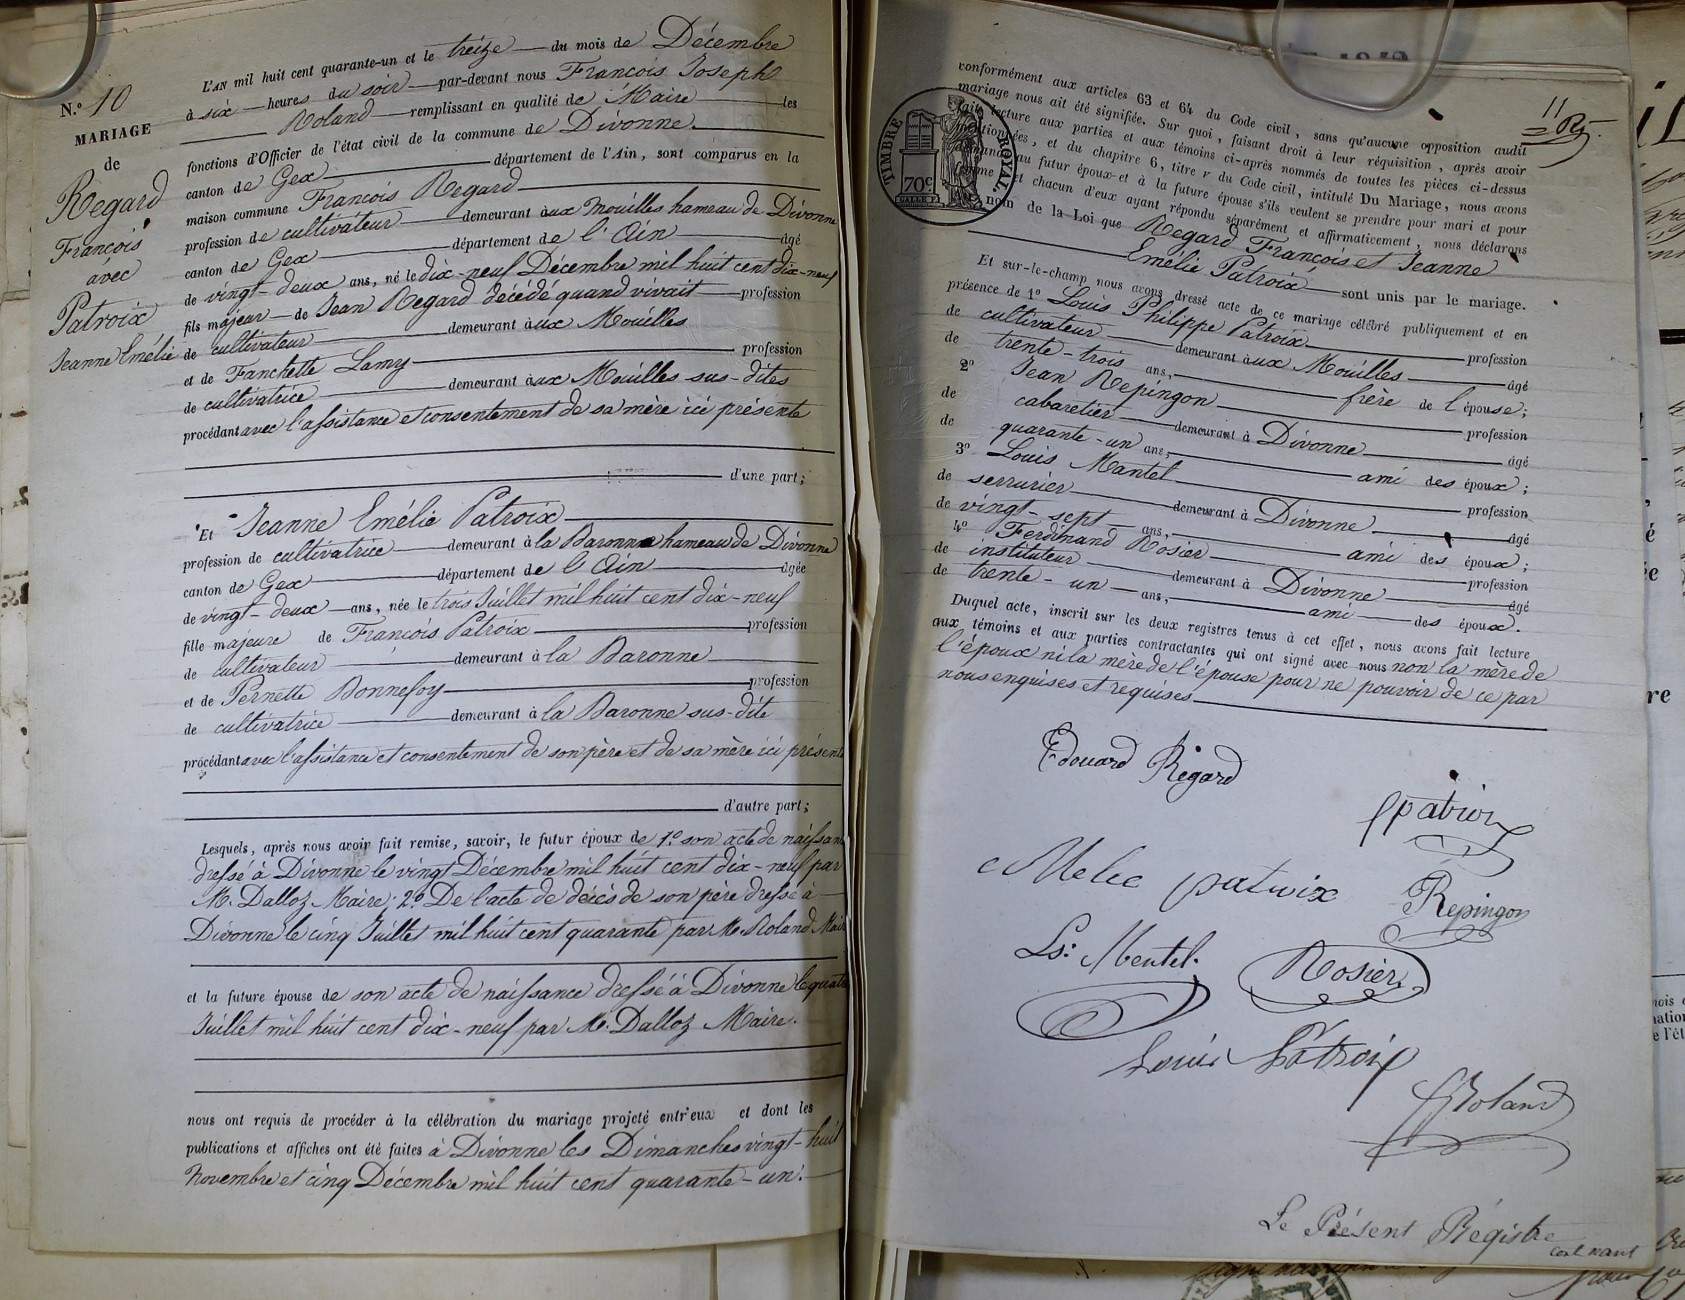 N.º 10
MARIAGE
de
Regard
François
avec
Patroix
Jeanne Emélie
L'AN mil huit cent quarante-un et le treize du mois de Décembre
à six heures du soir par-devant nous François Joseph
Roland remplissant en qualité de Maire les
fonctions d'Officier de l'état civil de la commune de Divonne.
canton de Gex département de l'Ain, sont comparus en la
maison commune François Regard
profession de cultivateur demeurant aux Mouilles hameau de Divonne
canton de Gex département de l'Ain âgé
de vingt-deux ans, né le dix-neuf Décembre mil huit cent dix-neuf
fils majeur de Jean Regard décédé quand vivait profession
de cultivateur demeurant aux Mouilles
et de Fanchette Lamy profession
de cultivatrice demeurant aux Mouilles sus-dites
procédant avec l'assistance et consentement de sa mère ici présente
d'une part;
Et Jeanne Emélie Patroix
profession de cultivatrice demeurant à la Baronne hameau de Divonne
canton de Gex département de l'Ain âgée
de vingt-deux ans, née le trois Juillet mil huit cent dix-neuf
fille majeure de François Patroix profession
de cultivateur demeurant à la Baronne
et de Pernette Bonnefoy profession
de cultivatrice demeurant à la Baronne sus-dite
procédant avec l'assistance et consentement de son père et de sa mère ici présents
d'autre part;
Lesquels, après nous avoir fait remise, savoir, le futur époux de 1.º son acte de naissan
dressé à Divonne le vingt Décembre mil huit cent dix-neuf par
M. Dalloz Maire; 2.º De l'acte de décès de son père dressé à
Divonne le cinq Juillet mil huit cent quarante par M. Roland Mair
et la future épouse de son acte de naissance dressé à Divonne le quatre
Juillet mil huit cent dix-neuf par M. Dalloz Maire.
nous ont requis de procéder à la célébration du mariage projeté entr'eux et dont les
publications et affiches ont été faites à Divonne les Dimanches vingt-huit
Novembre et cinq Décembre mil huit cent quarante-un.
11
TIMBRE ROYAL
70c
conformément aux articles 63 et 64 du Code civil, sans qu'aucune opposition audit
mariage nous ait été signifiée. Sur quoi, faisant droit à leur réquisition, après avoir
fait lecture aux parties et aux témoins ci-après nommés de toutes les pièces ci-dessus
mentionnées, et du chapitre 6, titre V du Code civil, intitulé Du Mariage, nous avons
demandé au futur époux et à la future épouse s'ils veulent se prendre pour mari et pour
femme et chacun d'eux ayant répondu séparément et affirmativement, nous déclarons
nom de la Loi que Regard François et Jeanne
Emélie Patroix sont unis par le mariage.
Et sur-le-champ nous avons dressé acte de ce mariage célébré publiquement et en
présence de 1º Louis Philippe Patroix profession
de cultivateur demeurant aux Mouilles âgé
de trente-trois ans, frère de l'épouse;
2º Jean Repingon profession
de cabaretier demeurant à Divonne âgé
de quarante-un ans, ami des époux;
3º Louis Mantel profession
de serrurier demeurant à Divonne âgé
de vingt-sept ans, ami des époux;
4º Ferdinand Rosier profession
de instituteur demeurant à Divonne âgé
de trente-un ans, ami des époux.
Duquel acte, inscrit sur les deux registres tenus à cet effet, nous avons fait lecture
aux témoins et aux parties contractantes qui ont signé avec nous non la mère de
l'époux ni la mère de l'épouse pour ne pouvoir de ce par
nous enquises et requises
Edouard Regard
patroix
Melie patroix
Repingon
Ls: Mentel.
Rosier
Louis Patroix
Roland
Le Présent Régistre
contenant